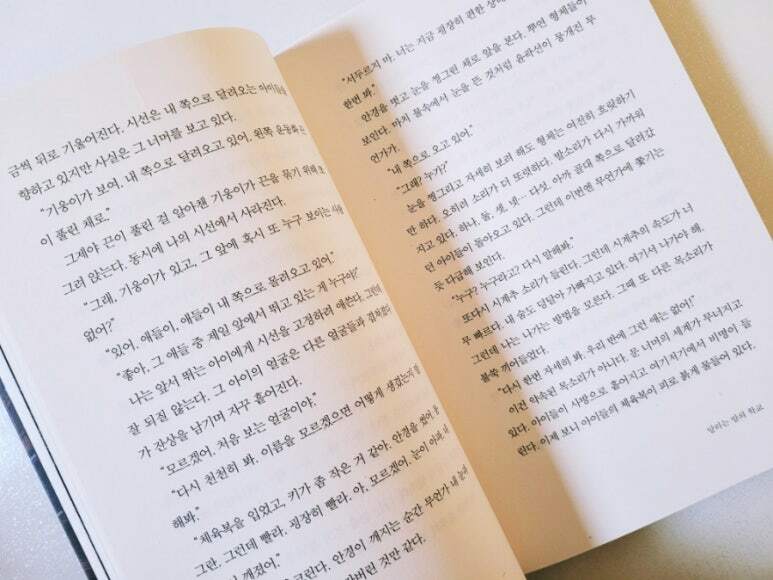 금씩 뒤로 기울어진다. 시선은 내 쪽으로 달려오는 아이들을
향하고 있지만 사실은 그 너머를 보고 있다.
"기웅이가 보여. 내 쪽으로 달려오고 있어. 왼쪽 운동화 끈
이 풀린 채로."
그제야 끈이 풀린 걸 알아챈 기웅이가 끈을 묶기 위해
그려 앉는다. 동시에 나의 시선에서 사라진다.
"그래, 기웅이가 있고, 그 앞에 혹시 또 누구 보이는 사람
없어?"
"있어. 애들이, 애들이 내 쪽으로 몰려오고 있어."
"좋아, 그 애들 중 제일 앞에서 뛰고 있는 게 누구야?"
나는 앞서 뛰는 아이에게 시선을 고정하려 애쓴다. 그런데
잘 되질 않는다. 그 아이의 얼굴은 다른 얼굴들과 겹쳐졌다
가 잔상을 남기며 자꾸 흩어진다.
"모르겠어. 처음 보는 얼굴이야."
"다시 천천히 봐. 이름을 모르겠으면 어떻게 생겼는지 말
해봐."
"체육복을 입었고, 키가 좀 작은 거 같아. 안경을 썼어.
그란, 그런데 빨라. 굉장히 빨라. 아, 모르겠어. 눈이 아파. 내
이 깨졌어."
크린다. 안경이 깨지는 순간 무언가 내 눈
버린 것만 같다.
"서두르지 마. 너는 지금 굉장히 편한 상태
한번 봐."
안경을 벗고 눈을 찡그린 채로 앞을 본다. 뿌연 형체들이
보인다. 마치 물속에서 눈을 뜬 것처럼 윤곽선이 뭉개진 무
언가가.
"내 쪽으로 오고 있어."
"그래? 누가?"
눈을 찡그리고 자세히 보려 해도 형체는 여전히 흐릿하기
만 하다. 오히려 소리가 더 또렷하다. 발소리가 다시 가까워
지고 있다. 하나, 둘, 셋, 넷… 다섯. 아까 골대 쪽으로 달려갔
던 아이들이 돌아오고 있다. 그런데 이번엔 무언가에 쫓기는
듯 다급해 보인다.
"누구? 누구라고? 다시 말해봐."
또다시 시계추 소리가 들린다. 그런데 시계추의 속도가 너
무 빠르다. 내 숨도 덩달아 가빠지고 있다. 여기서 나가야 해.
그런데 나는 나가는 방법을 모른다. 그때 또 다른 목소리가
불쑥 끼어들었다.
"다시 한번 자세히 봐. 우리 반에 그런 애는 없어!"
이건 약속된 목소리가 아니다. 문 너머의 세계가 무너지고
있다. 아이들이 사방으로 흩어지고 여기저기에서 비명이 들
린다. 이제 보니 아이들의 체육복이 피로 붉게 물들어 있다.
달리는 밤의 학교